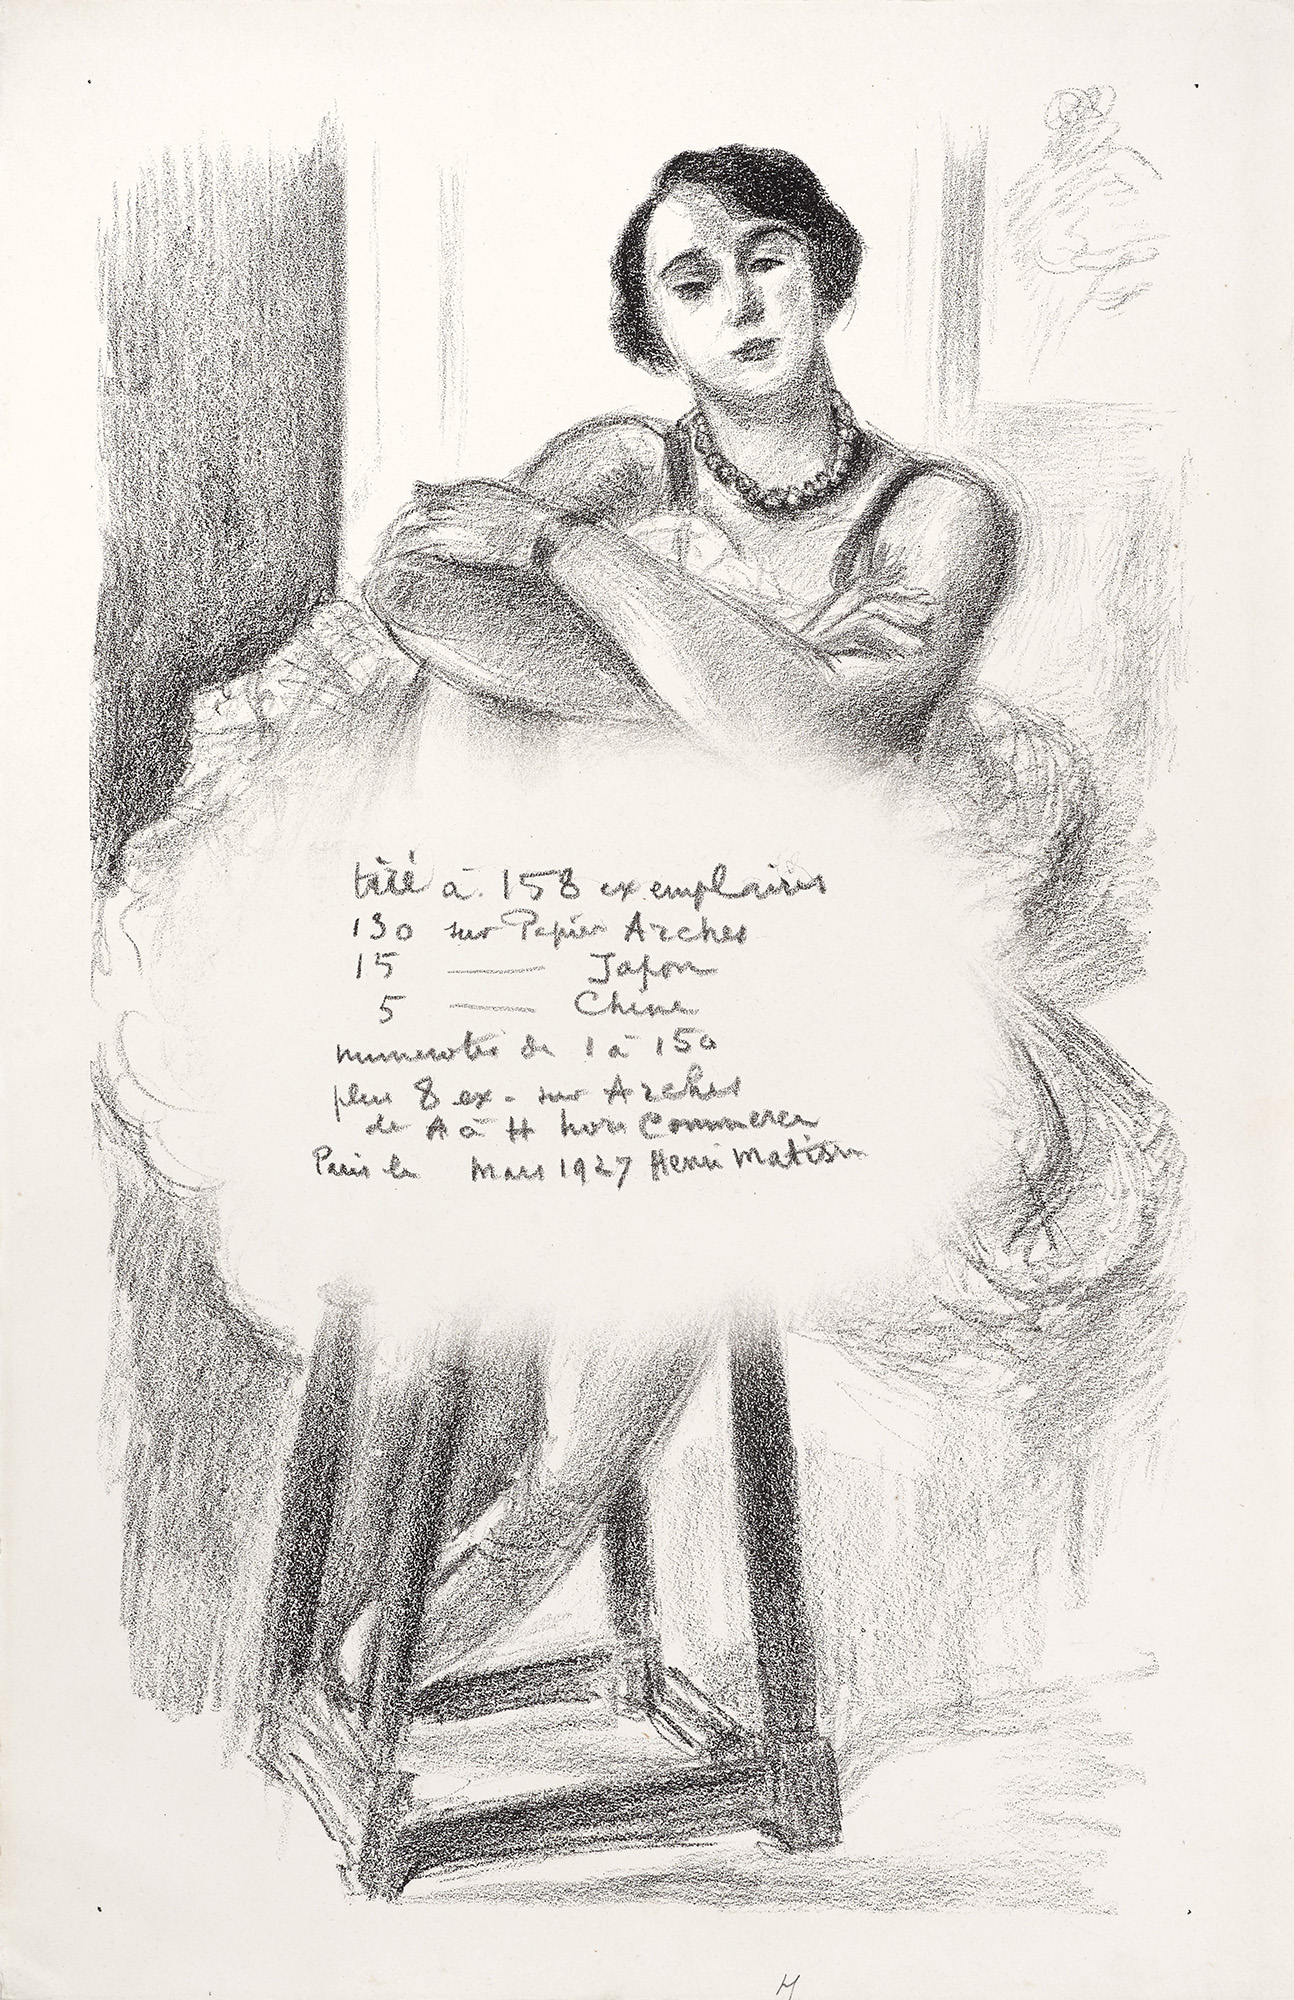 tiré à 158 exemplaires
130 sur Papier Arches
15 — Japon
5 — Chine
numerotés de 1 à 150
plus 8 ex- sur Arches
de A à H hors Commerce
Paris le Mars 1927 Henri Matisse
H